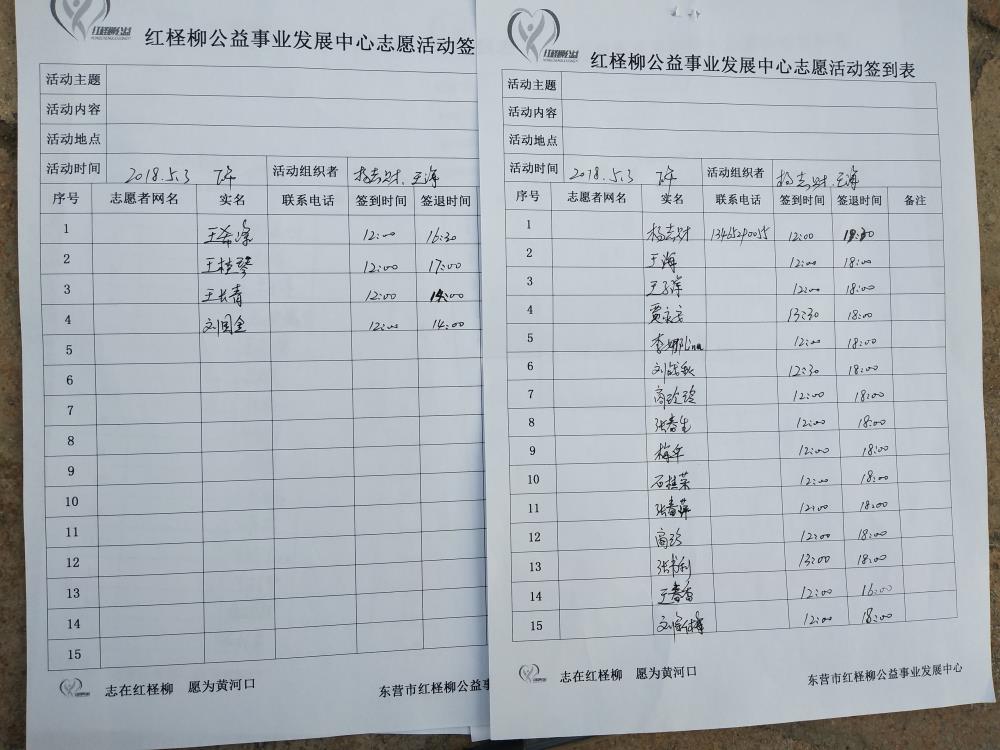 红柽柳公益
红柽柳公益事业发展中心志愿活动签
活动主题
活动内容
活动地点
活动时间 2018.5.3 下午 活动组织者 杨志财.王海
序号 志愿者网名 实名 联系电话 签到时间 签退时间
1 12:00 16:30
2 王桂琴 12:00 17:00
3 王长青 12:00 14:00
4 刘国全 12:00 14:00
5
6
7
8
9
10
11
12
13
14
15
志在红柽柳 愿为黄河口
东营市红柽柳公益事
红柽柳公益
红柽柳公益事业发展中心志愿活动签到表
活动主题
活动内容
活动地点
活动时间 2018.5.3 下午 活动组织者 杨志财.王海
序号 志愿者网名 实名 联系电话 签到时间 签退时间 备注
1 杨志财 13465290055 12:00 18:30
2 王海 12:00 18:00
3 12:00 18:00
4 13:30 18:00
5 李娜 12:00 18:00
6 12:30 18:00
7 高玲玲 12:00 18:00
8 张春生 12:00 18:00
9 梅军 12:00 18:00
10 石桂荣 12:00 18:00
11 张春萍 12:00 18:00
12 高玲 12:00 18:00
13 13:00 18:00
14 王春香 12:00 16:00
15 12:00 18:00
志在红柽柳 愿为黄河口
东营市红柽柳公益事业发展中心